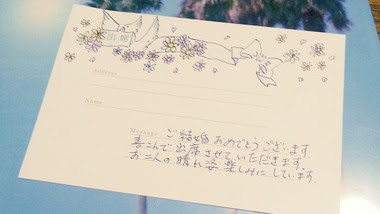 出席
Address
Name
Message ご結婚おめでとうございます
喜んで出席させていただきます。
お二人の晴れ姿楽しみにしています。